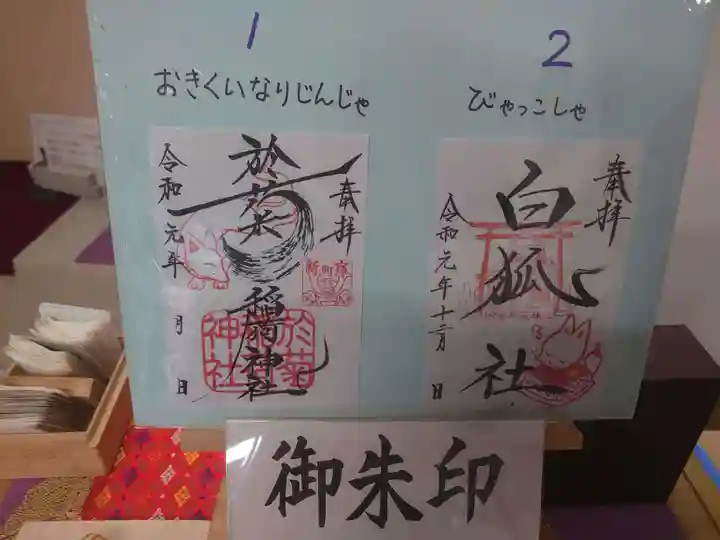 1
おきくいなりじんじゃ
奉拝
於菊稲荷神社
令和元年 月 日
新町宿
於菊稲荷神社
2
びゃっこしゃ
奉拝
白狐社
令和元年十二月 日
御朱印